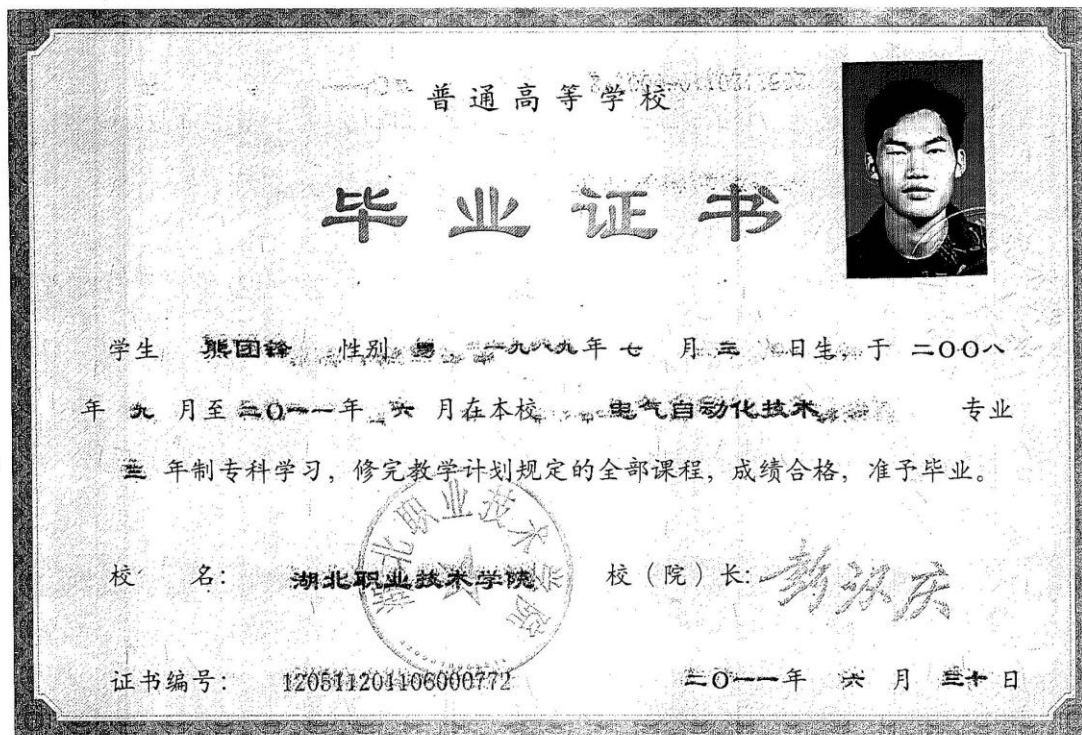 普通高等学校
毕业证书
学生 熊团锋 性别 男 一九八九年 七 月 三 日生, 于 二〇〇八
年 九 月至 二〇一一年 六 月在本校 电气自动化技术 专业
三 年制专科学习, 修完教学计划规定的全部课程, 成绩合格, 准予毕业。
湖北职业技术学院
校 名: 湖北职业技术学院 校(院)长: 彭汉庆
证书编号: 120511201106000772 二〇一一年 六 月 三十 日